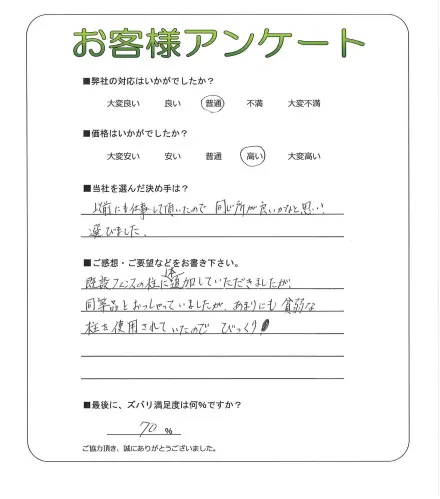 お客様アンケート
■弊社の対応はいかがでしたか?
大変良い 良い 普通 不満 大変不満
■価格はいかがでしたか?
大変安い 安い 普通 高い 大変高い
■当社を選んだ決め手は?
以前にも仕事して頂いたので 同じ所が良いかなと思い
選びました。
■ご感想・ご要望などをお書き下さい。
既設フェンスの柱に1本追加していただきましたが、
同等品とおっしゃっていましたが、あまりにも貧弱な
柱を使用されていたのでびっくり!
■最後に、ズバリ満足度は何%ですか?
70 %
ご協力頂き、誠にありがとうございました。